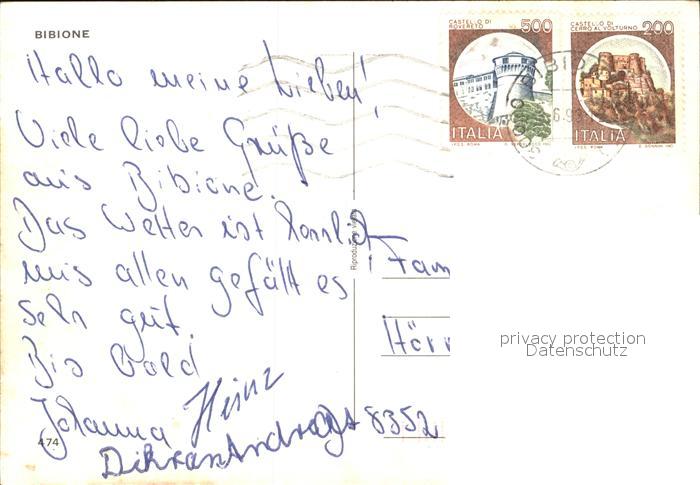 BIBIONE
Hallo meine Lieben!
Viele liebe Grüße
aus Bibione.
Das Wetter ist herrlich,
uns allen gefällt es
sehr gut.
Bis bald
Johanna Heinz
474
8352
Fam
Hörr
Riproduzione vietata
CASTELLO DI
ROVERETO 500
ITALIA
CASTELLO DI
CERRO AL VOLTURNO 200
ITALIA
privacy protection
Datenschutz